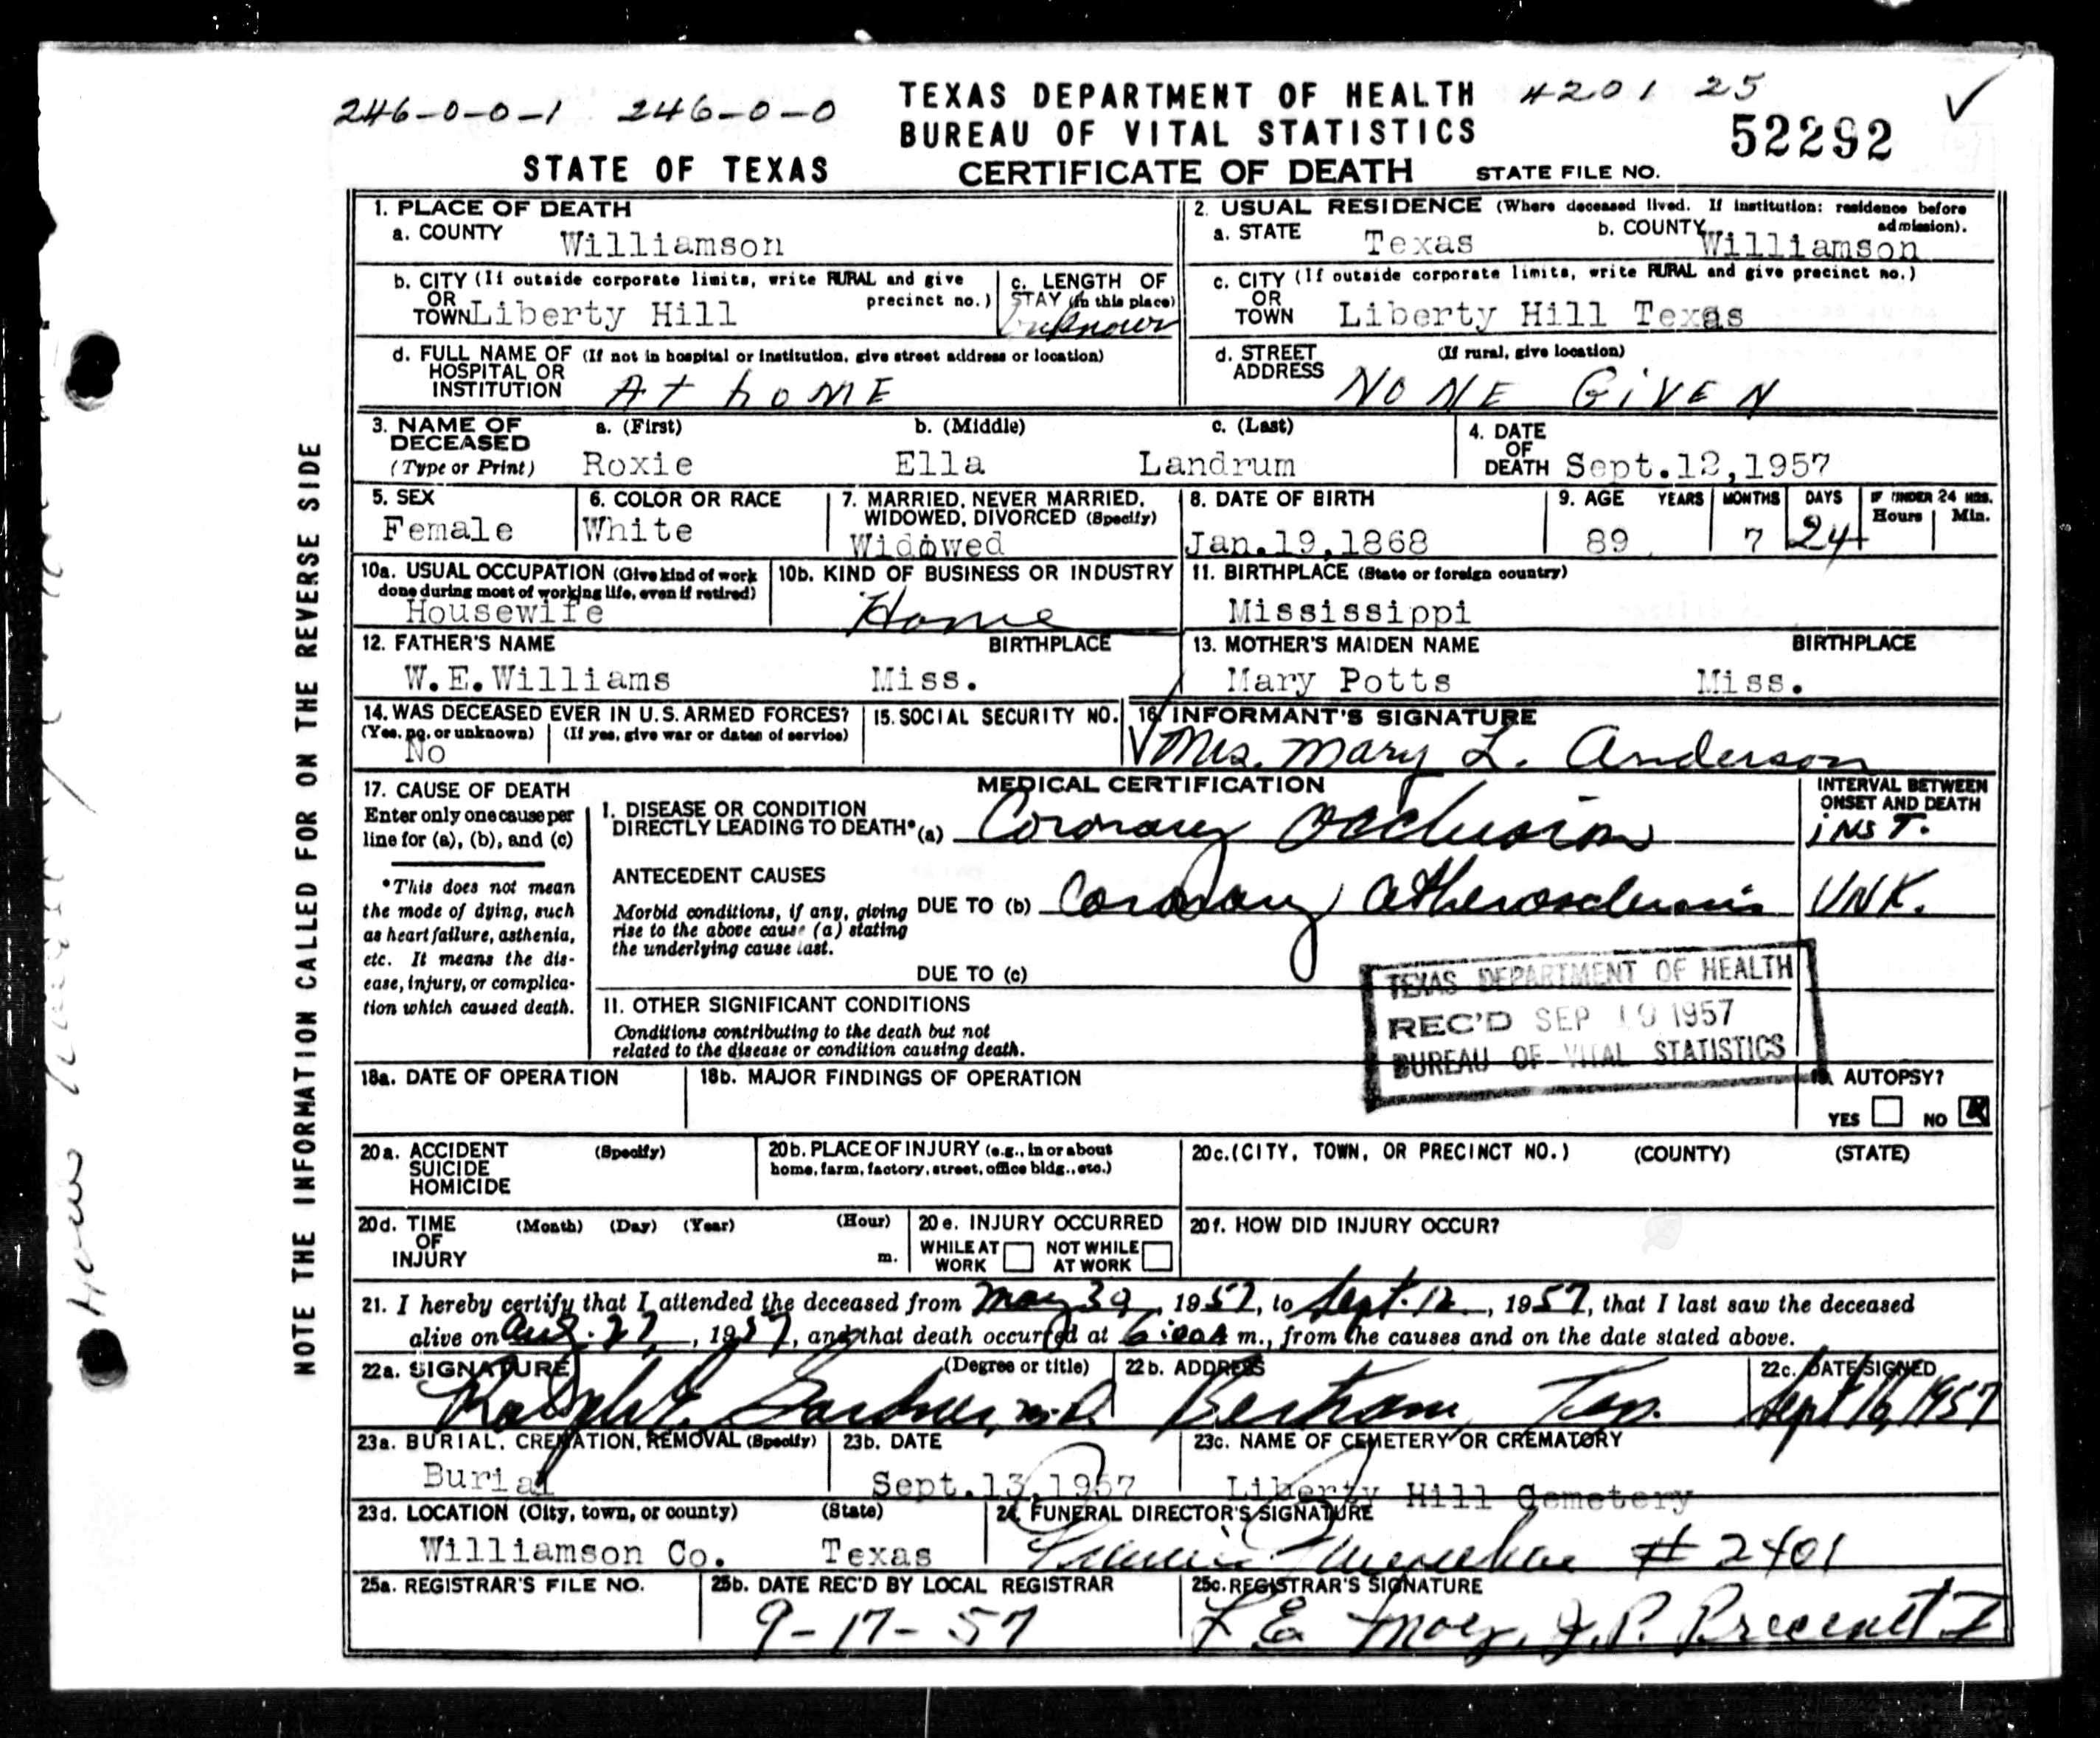 246-0-0-1 246-0-0
TEXAS DEPARTMENT OF HEALTH 4201 25
BUREAU OF VITAL STATISTICS 52292
STATE OF TEXAS CERTIFICATE OF DEATH STATE FILE NO.
NOTE THE INFORMATION CALLED FOR ON THE REVERSE SIDE
1. PLACE OF DEATH
a. COUNTY Williamson
2. USUAL RESIDENCE (Where deceased lived. If institution: residence before admission).
a. STATE Texas b. COUNTY Williamson
b. CITY (If outside corporate limits, write RURAL and give precinct no.)
OR TOWN Liberty Hill
c. LENGTH OF STAY (in this place) Unknown
c. CITY (If outside corporate limits, write RURAL and give precinct no.)
OR TOWN Liberty Hill Texas
d. FULL NAME OF HOSPITAL OR INSTITUTION (If not in hospital or institution, give street address or location)
At home
d. STREET ADDRESS (If rural, give location)
NONE GIVEN
3. NAME OF DECEASED (Type or Print) a. (First) b. (Middle) c. (Last)
Roxie Ella Landrum
4. DATE OF DEATH Sept.12,1957
5. SEX Female
6. COLOR OR RACE White
7. MARRIED, NEVER MARRIED, WIDOWED, DIVORCED (Specify) Widowed
8. DATE OF BIRTH Jan.19,1868
9. AGE YEARS MONTHS DAYS IF UNDER 24 HRS. Hours Min.
89 7 24
10a. USUAL OCCUPATION (Give kind of work done during most of working life, even if retired)
Housewife
10b. KIND OF BUSINESS OR INDUSTRY Home
11. BIRTHPLACE (State or foreign country) Mississippi
12. FATHER'S NAME BIRTHPLACE
W.E.Williams Miss.
13. MOTHER'S MAIDEN NAME BIRTHPLACE
Mary Potts Miss.
14. WAS DECEASED EVER IN U.S. ARMED FORCES?
(Yes, no, or unknown) (If yes, give war or dates of service)
No
15. SOCIAL SECURITY NO.
16. INFORMANT'S SIGNATURE
Mrs. Mary L. Anderson
17. CAUSE OF DEATH
Enter only one cause per line for (a), (b), and (c)
*This does not mean the mode of dying, such as heart failure, asthenia, etc. It means the disease, injury, or complication which caused death.
MEDICAL CERTIFICATION
INTERVAL BETWEEN ONSET AND DEATH
I. DISEASE OR CONDITION DIRECTLY LEADING TO DEATH* (a) Coronary occlusion INST.
ANTECEDENT CAUSES
Morbid conditions, if any, giving rise to the above cause (a) stating the underlying cause last.
DUE TO (b) Coronary atherosclerosis UNK.
DUE TO (c)
II. OTHER SIGNIFICANT CONDITIONS
Conditions contributing to the death but not related to the disease or condition causing death.
TEXAS DEPARTMENT OF HEALTH
REC'D SEP 19 1957
BUREAU OF VITAL STATISTICS
18a. DATE OF OPERATION
18b. MAJOR FINDINGS OF OPERATION
19. AUTOPSY?
YES NO X
20a. ACCIDENT SUICIDE HOMICIDE (Specify)
20b. PLACE OF INJURY (e.g., in or about home, farm, factory, street, office bldg., etc.)
20c. (CITY, TOWN, OR PRECINCT NO.) (COUNTY) (STATE)
20d. TIME OF INJURY (Month) (Day) (Year) (Hour) m.
20e. INJURY OCCURRED
WHILE AT WORK NOT WHILE AT WORK
20f. HOW DID INJURY OCCUR?
21. I hereby certify that I attended the deceased from May 30, 1957, to Sept. 12, 1957, that I last saw the deceased
alive on Aug. 27, 1957, and that death occurred at 6:00A m., from the causes and on the date stated above.
22a. SIGNATURE (Degree or title)
Ralph E. Gardner, M.D.
22b. ADDRESS
Bertram, Tex.
22c. DATE SIGNED
Sept 16, 1957
23a. BURIAL, CREMATION, REMOVAL (Specify)
Burial
23b. DATE
Sept.13,1957
23c. NAME OF CEMETERY OR CREMATORY
Liberty Hill Cemetery
23d. LOCATION (City, town, or county) (State)
Williamson Co. Texas
24. FUNERAL DIRECTOR'S SIGNATURE
# 2401
25a. REGISTRAR'S FILE NO.
25b. DATE REC'D BY LOCAL REGISTRAR
9-17-57
25c. REGISTRAR'S SIGNATURE
J.P. Precinct I